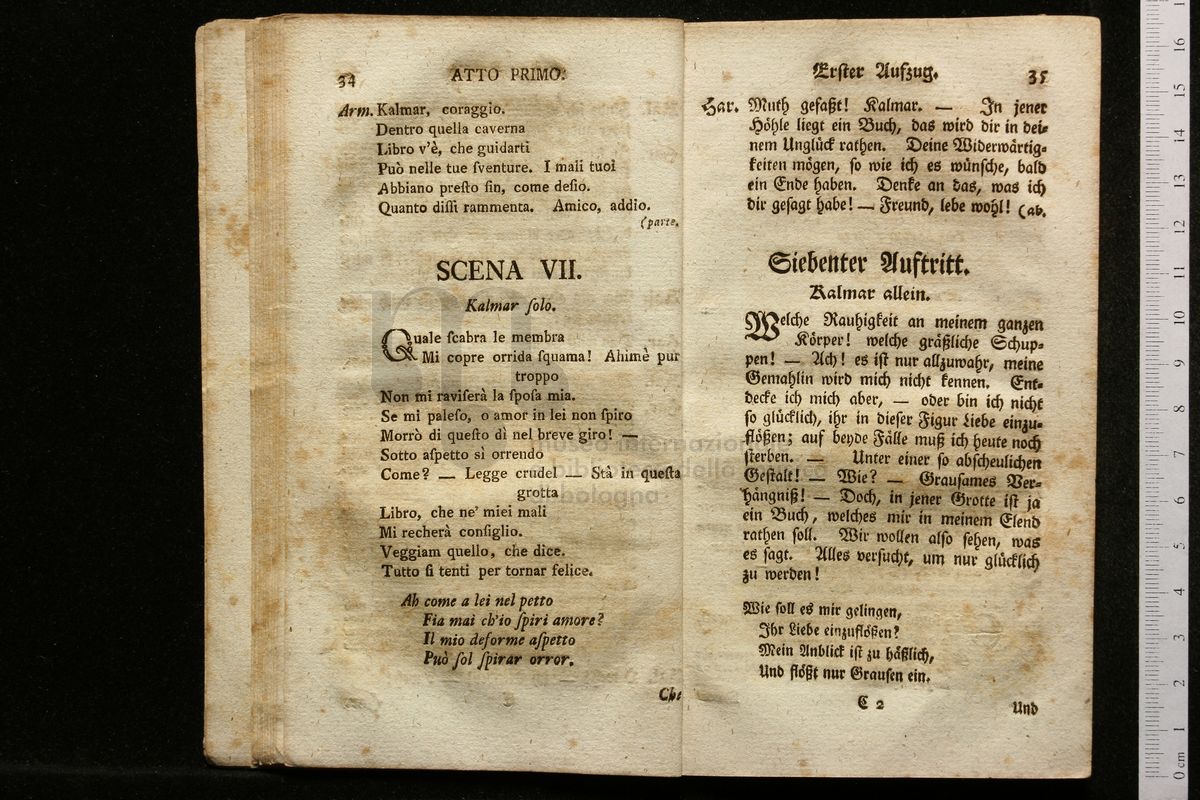 34
ATTO PRIMO.
Arm. Kalmar, coraggio.
Dentro quella caverna
Libro v'è, che guidarti
Può nelle tue ſventure. I mali tuoi
Abbiano preſto fin, come deſio.
Quanto diſſi rammenta. Amico, addio.
(parte.
SCENA VII.
Kalmar ſolo.
Quale ſcabra le membra
Mi copre orrida ſquama! Ahimè pur
troppo
Non mi raviſerà la ſpoſa mia.
Se mi paleſo, o amor in lei non ſpiro
Morrò di queſto dì nel breve giro! —
Sotto aſpetto sì orrendo
Come? — Legge crudel — Stà in queſta
grotta
Libro, che ne' miei mali
Mi recherà conſiglio.
Veggiam quello, che dice.
Tutto ſi tenti per tornar felice.
Ah come a lei nel petto
Fia mai ch'io ſpiri amore?
Il mio deforme aſpetto
Può ſol ſpirar orror.
Che
Erſter Aufzug.
35
Har. Muth gefaßt! Kalmar. — In jener
Höhle liegt ein Buch, das wird dir in dei-
nem Unglück rathen. Deine Widerwärtig-
keiten mögen, ſo wie ich es wünſche, bald
ein Ende haben. Denke an das, was ich
dir geſagt habe! — Freund, lebe wohl! (ab.
Siebenter Auftritt.
Kalmar allein.
Welche Rauhigkeit an meinem ganzen
Körper! welche gräßliche Schup-
pen! — Ach! es iſt nur allzuwahr, meine
Gemahlin wird mich nicht kennen. Ent-
decke ich mich aber, — oder bin ich nicht
ſo glücklich, ihr in dieſer Figur Liebe einzu-
flößen; auf beyde Fälle muß ich heute noch
ſterben. — Unter einer ſo abſcheulichen
Geſtalt! — Wie? — Grauſames Ver-
hängniß! — Doch, in jener Grotte iſt ja
ein Buch, welches mir in meinem Elend
rathen ſoll. Wir wollen alſo ſehen, was
es ſagt. Alles verſucht, um nur glücklich
zu werden!
Wie ſoll es mir gelingen,
Ihr Liebe einzuflößen?
Mein Anblick iſt zu häßlich,
Und flößt nur Grauſen ein.
C 2
Und
museo internazionale
e biblioteca della musica
di bologna
0 cm 1 2 3 4 5 6 7 8 9 10 11 12 13 14 15 16